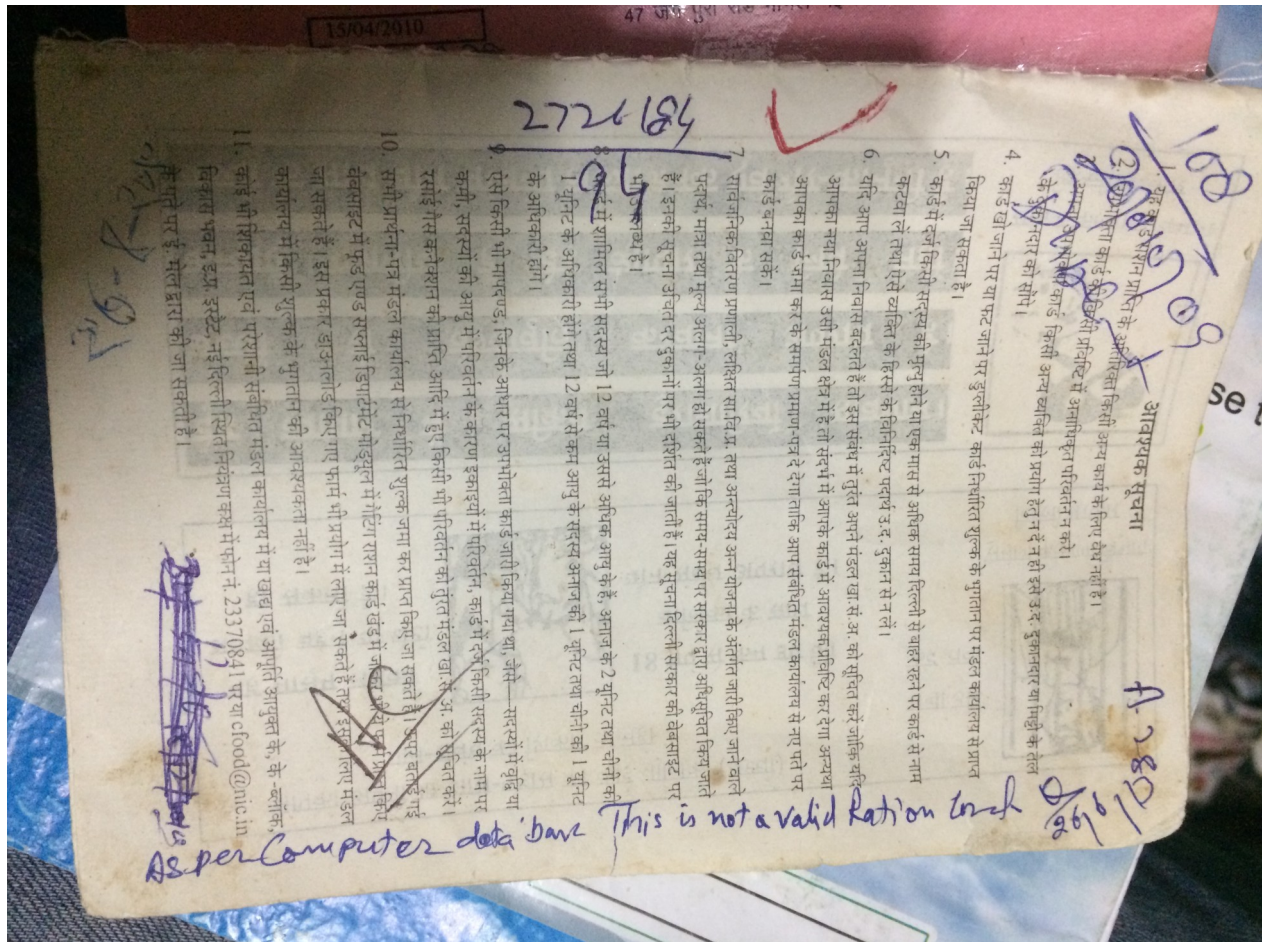 15/04/2010
47
se t
108
09
A-2891
आवश्यक सूचना
1. यह कार्ड राशन प्राप्ति के अतिरिक्त किसी अन्य कार्य के लिए वैध नहीं है।
उपभोक्ता कार्ड की किसी प्रविष्टि में अनाधिकृत परिवर्तन न करें।
कार्ड किसी अन्य व्यक्ति को प्रयोग हेतु न दें न ही इसे उ.द. दुकानदार या मिट्टी के तेल
के दुकानदार को सौंपे।
4. कार्ड खो जाने पर या फट जाने पर डुप्लीकेट कार्ड निर्धारित शुल्क के भुगतान पर मंडल कार्यालय से प्राप्त
किया जा सकता है।
5. कार्ड में दर्ज किसी सदस्य की मृत्यु होने या एक मास से अधिक समय दिल्ली से बाहर रहने पर कार्ड से नाम
कटवा लें तथा ऐसे व्यक्ति के हिस्से के विनिर्दिष्ट पदार्थ उ.द. दुकान से न लें।
6. यदि आप अपना निवास बदलते हैं तो इस संबंध में तुरंत अपने मंडल खा.सं.अ. को सूचित करें जोकि यदि
आपका नया निवास उसी मंडल क्षेत्र में है तो संदर्भ में आपके कार्ड में आवश्यक प्रविष्टि कर देगा अन्यथा
आपका कार्ड जमा कर के समर्पण प्रमाण-पत्र दे देगा ताकि आप संबंधित मंडल कार्यालय से नए पते पर
कार्ड बनवा सकें।
7. सार्वजनिक वितरण प्रणाली, लक्षित सा.वि.प्र. तथा अन्त्योदय अन्न योजना के अंतर्गत जारी किए जाने वाले
पदार्थ, मात्रा तथा मूल्य अलग-अलग हो सकते हैं जोकि समय-समय पर सरकार द्वारा अधिसूचित किये जाते
हैं। इनकी सूचना उचित दर दुकानों पर भी दर्शित की जाती है। यह सूचना दिल्ली सरकार की वेबसाइट पर
भी उपलब्ध है।
8. कार्ड में शामिल सभी सदस्य जो 12 वर्ष या उससे अधिक आयु के हैं, अनाज के 2 यूनिट तथा चीनी की
1 यूनिट के अधिकारी होंगे तथा 12 वर्ष से कम आयु के सदस्य अनाज की 1 यूनिट तथा चीनी की 1 यूनिट
के अधिकारी होंगे।
9. ऐसे किसी भी मापदण्ड, जिनके आधार पर उपभोक्ता कार्ड जारी किया गया था, जैसे—सदस्यों में वृद्धि या
कमी, सदस्यों की आयु में परिवर्तन के कारण इकाइयों में परिवर्तन, कार्ड में दर्ज किसी सदस्य के नाम पर
रसोई गैस कनेक्शन की प्राप्ति आदि में हुए किसी भी परिवर्तन को तुरंत मंडल खा.सं.अ. को सूचित करें।
10. सभी प्रार्थना-पत्र मंडल कार्यालय से निर्धारित शुल्क जमा कर प्राप्त किए जा सकते हैं।
वेबसाइट में फूड एण्ड सप्लाई डिपार्टमेंट मोड्यूल में गेटिंग राशन कार्ड खंड में
जा सकते हैं। इस प्रकार डाउनलोड किए गए फार्म भी प्रयोग में लाए जा सकते हैं तथा इसके लिए मंडल
कार्यालय में किसी शुल्क के भुगतान की आवश्यकता नहीं है।
11. कोई भी शिकायत एवं परेशानी संबंधित मंडल कार्यालय में या खाद्य एवं आपूर्ति आयुक्त के, के-ब्लाक,
विकास भवन, इ.प्र. इस्टेट, नई दिल्ली स्थित नियंत्रण कक्ष में फोन नं. 23370841 पर या cfood@nic.in
के पते पर ई. मेल द्वारा की जा सकती है।
As per Computer data base This is not a valid Ration Card